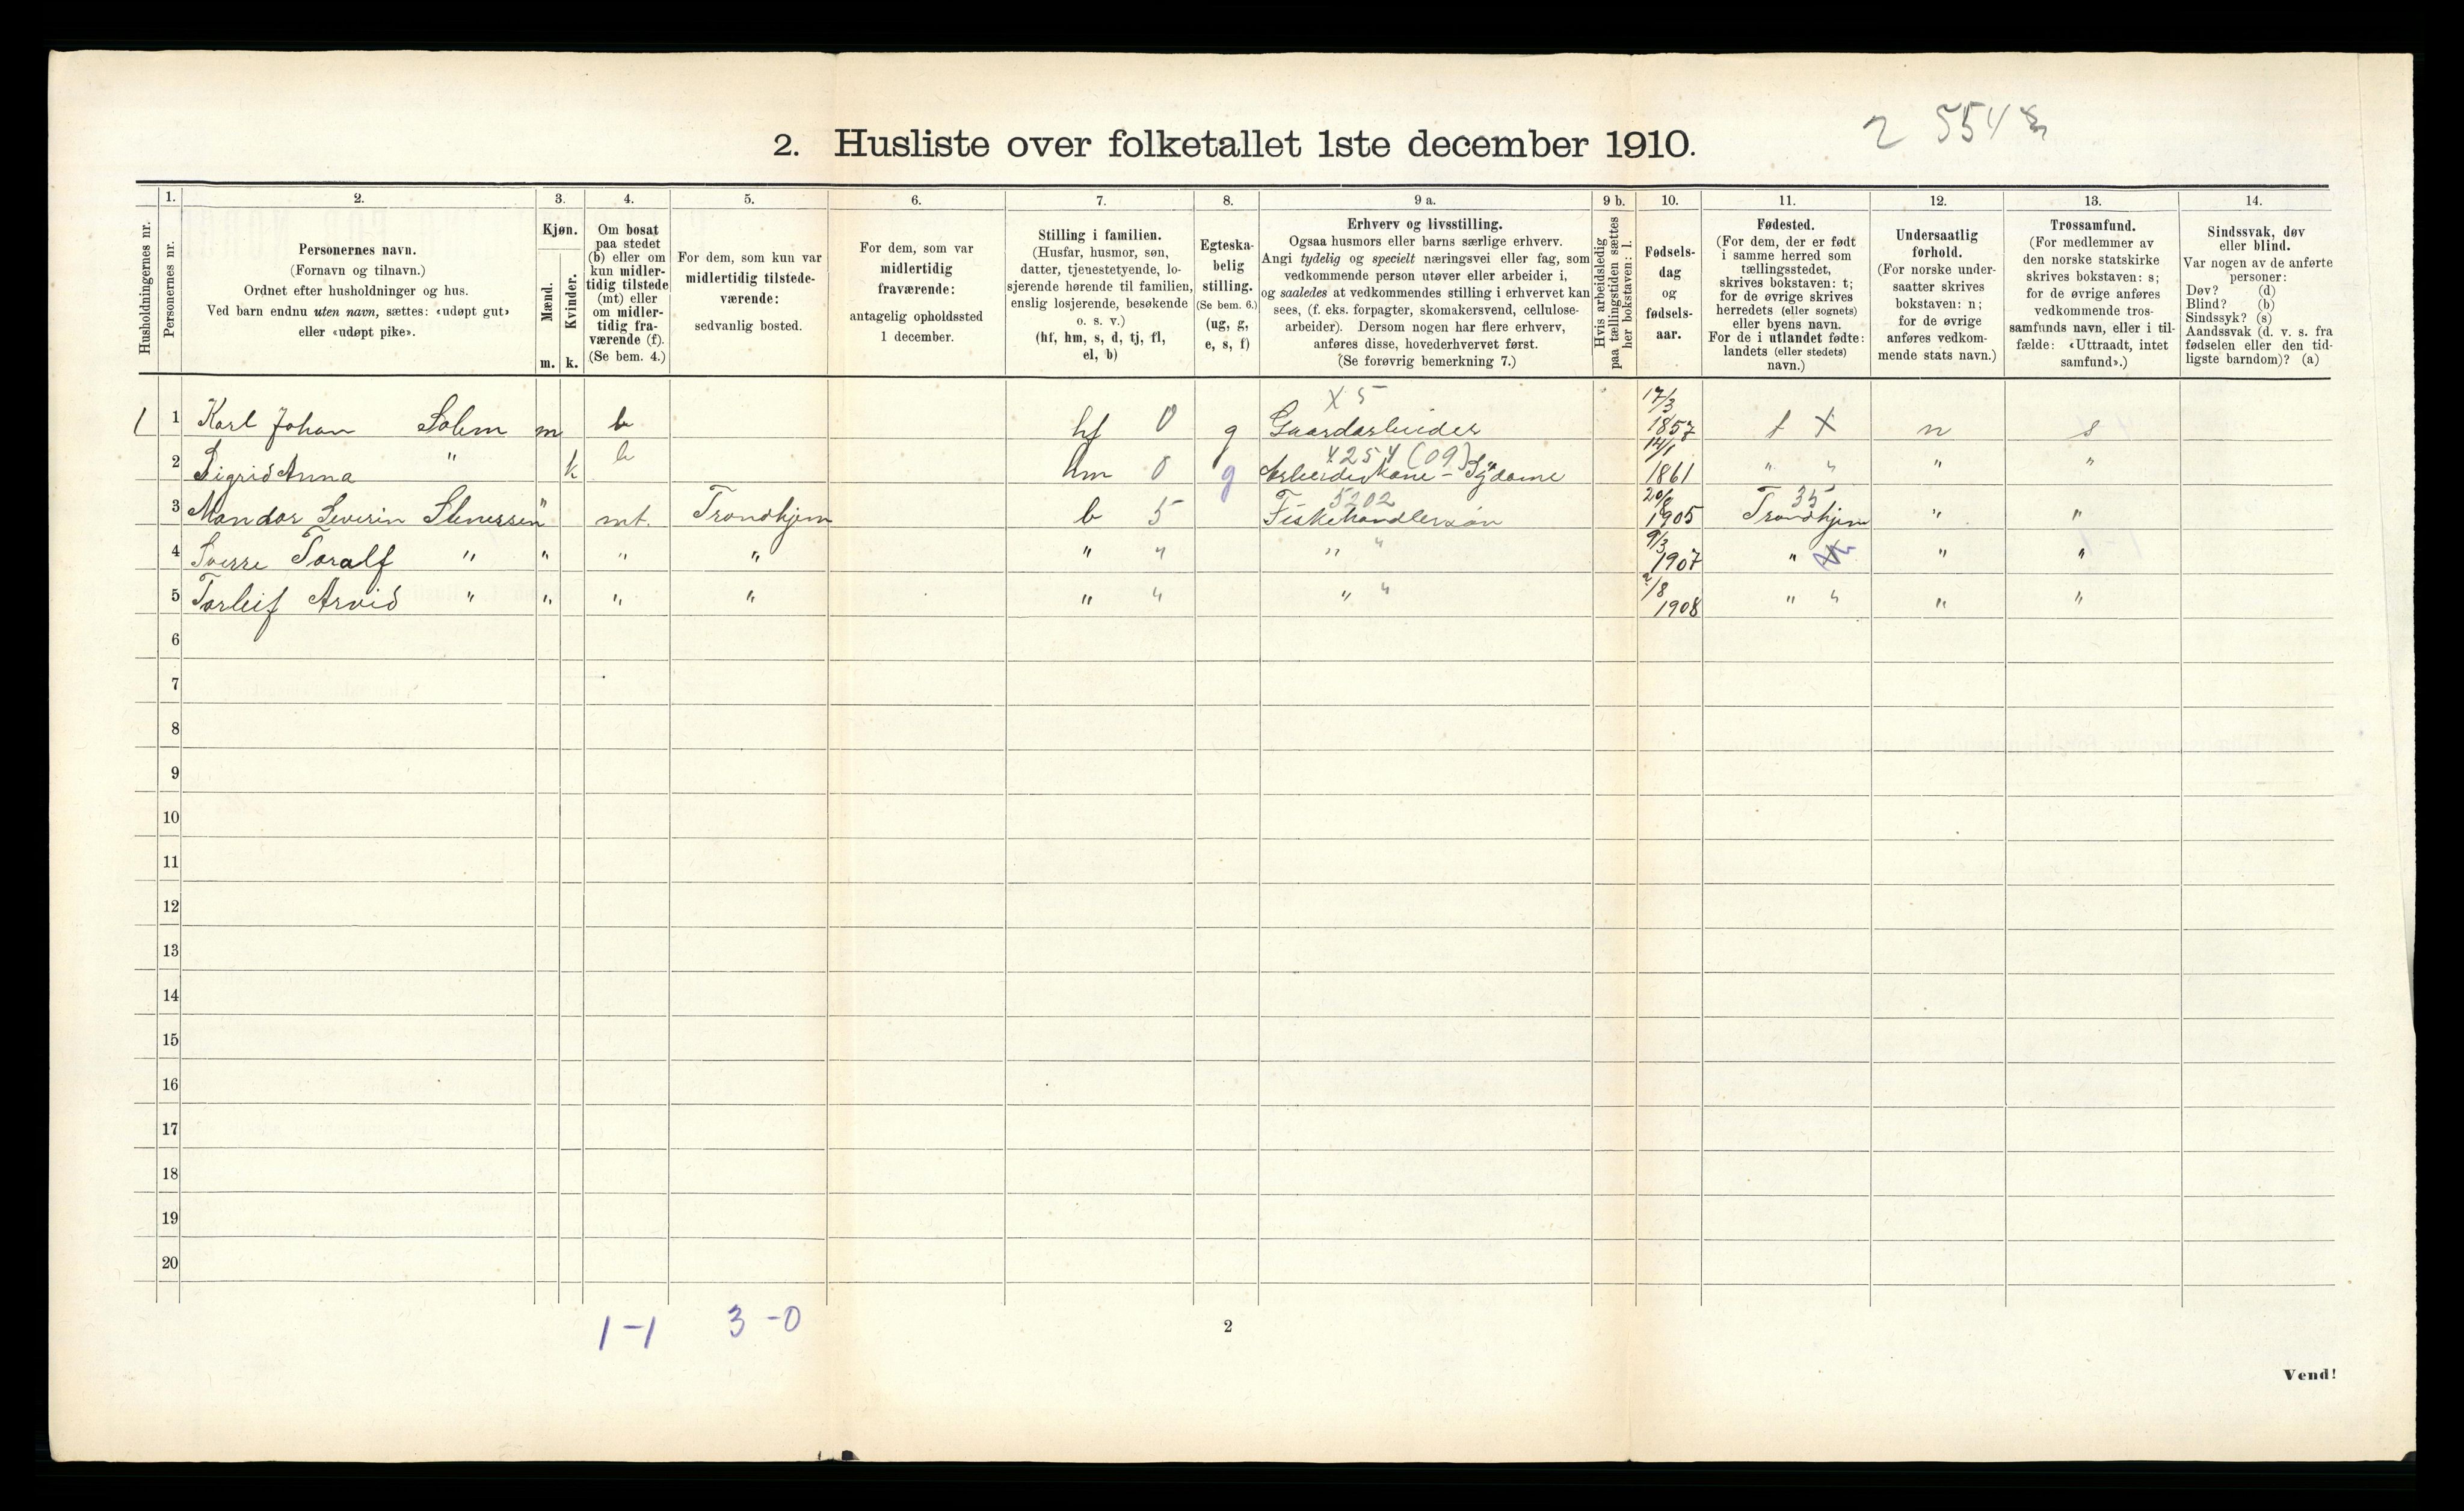 2 554
2. Husliste over folketallet 1ste december 1910.
Husholdningernes nr.
1.
Personernes nr.
2.
Personernes navn.
(Fornavn og tilnavn.)
Ordnet efter husholdninger og hus.
Ved barn endnu uten navn, sættes: «udøpt gut»
eller «udøpt pike».
3.
Kjøn.
Mænd.
m.
Kvinder.
k.
4.
Om bosat
paa stedet
(b) eller om
kun midler-
tidig tilstede
(mt) eller
om midler-
tidig fra-
værende (f).
(Se bem. 4.)
5.
For dem, som kun var
midlertidig tilstede-
værende:
sedvanlig bosted.
6.
For dem, som var
midlertidig
fraværende:
antagelig opholdssted
1 december.
7.
Stilling i familien.
(Husfar, husmor, søn,
datter, tjenestetyende, lo-
sjerende hørende til familien,
enslig losjerende, besøkende
o. s. v.)
(hf, hm, s, d, tj, fl,
el, b)
8.
Egteska-
belig
stilling.
(Se bem. 6.)
(ug, g,
e, s, f)
9 a.
Erhverv og livsstilling.
Ogsaa husmors eller barns særlige erhverv.
Angi tydelig og specielt næringsvei eller fag, som
vedkommende person utøver eller arbeider i,
og saaledes at vedkommendes stilling i erhvervet kan
sees, (f. eks. forpagter, skomakersvend, cellulose-
arbeider). Dersom nogen har flere erhverv,
anføres disse, hovederhvervet først.
(Se forøvrig bemerkning 7.)
9 b.
Hvis arbeidsledig
paa tællingstiden sættes
her bokstaven: l.
10.
Fødsels-
dag
og
fødsels-
aar.
11.
Fødested.
(For dem, der er født
i samme herred som
tællingsstedet,
skrives bokstaven: t;
for de øvrige skrives
herredets (eller sognets)
eller byens navn.
For de i utlandet fødte:
landets (eller stedets)
navn.)
12.
Undersaatlig
forhold.
(For norske under-
saatter skrives
bokstaven: n;
for de øvrige
anføres vedkom-
mende stats navn.)
13.
Trossamfund.
(For medlemmer av
den norske statskirke
skrives bokstaven: s;
for de øvrige anføres
vedkommende tros-
samfunds navn, eller i til-
fælde: «Uttraadt, intet
samfund».)
14.
Sindssvak, døv
eller blind.
Var nogen av de anførte
personer:
Døv? (d)
Blind? (b)
Sindssyk? (s)
Aandssvak (d. v. s. fra
fødselen eller den tid-
ligste barndom)? (a)
X 5
1 1 Karl Johan Solem m b hf 0 g Gaardarbeider 17/3 1857 t X n s
4254 (09)
2 Sigrid Anna " k b hm 0 g Arbeiderkone - Sydame 14/1 1861 " " " "
5202 35
3 Mandor Severin Stenersen " mt. Trondhjem b 5 Fiskehandlersøn 20/8 1905 Trondhjem " "
4 Sverre Toralf " " " " " " " " 9/3 1907 " " "
5 Torleif Arvid " " " " " " " " 2/8 1908 " " " "
6
7
8
9
10
11
12
13
14
15
16
17
18
19
20
1-1 3-0
2
Vend!